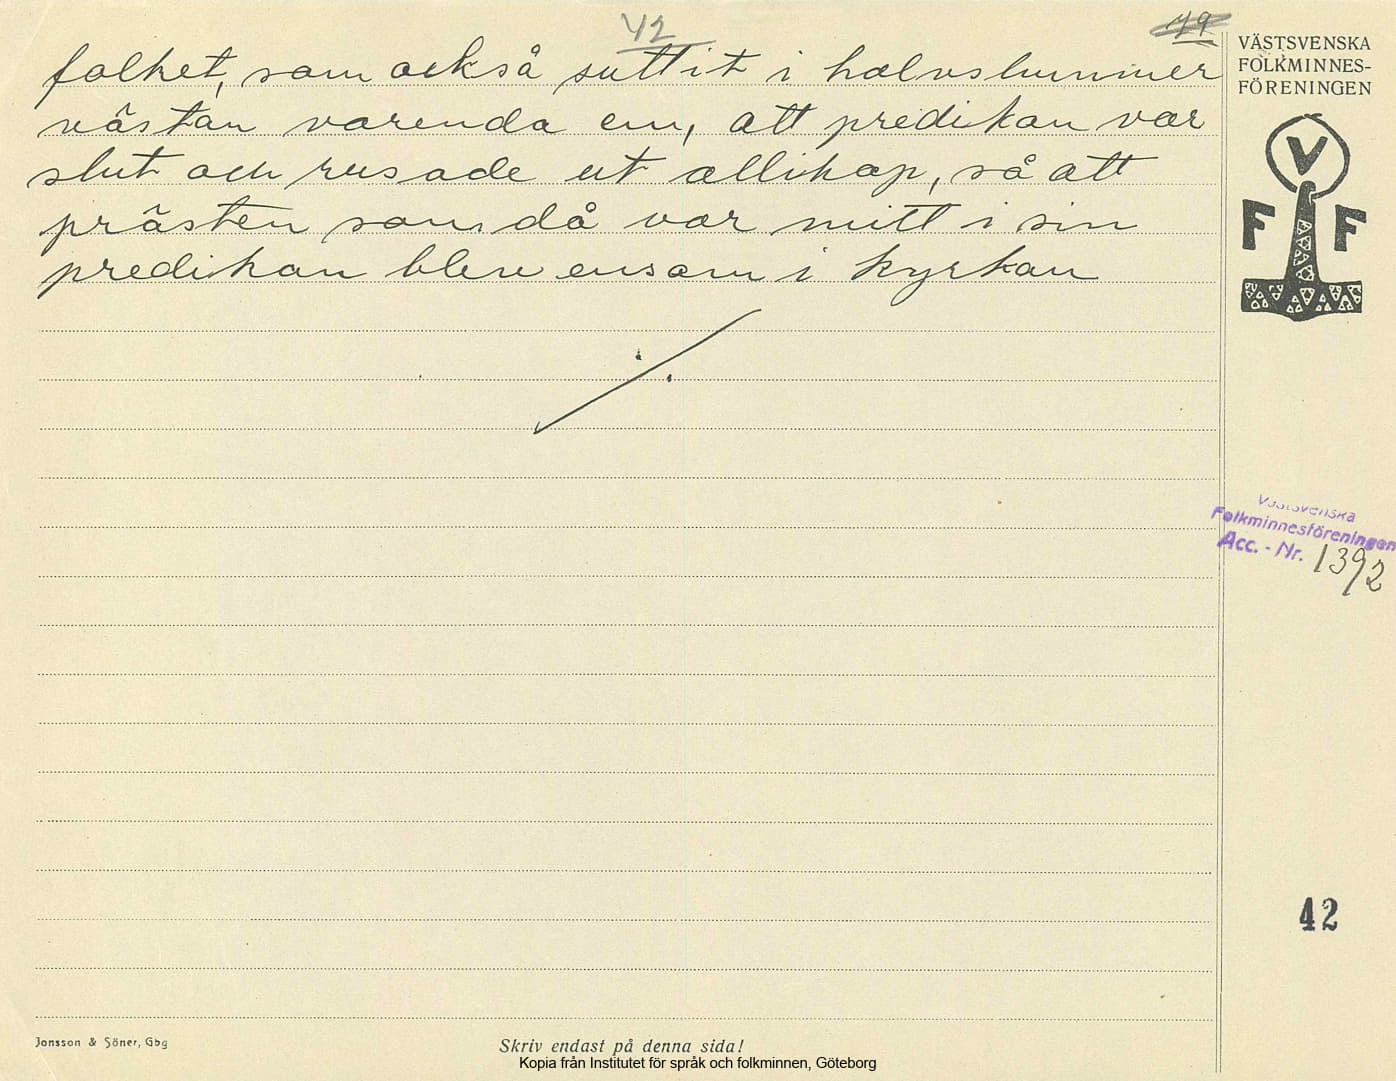 42
49
VÄSTSVENSKA
FOLKMINNES-
FÖRENINGEN
folket, som också suttit i halvslummer
nästan varenda en, att predikan var
slut och rusade ut ællihop, så att
prästen som då var mitt i sin
predikan blev ensam i kyrkan
V
F F
Västsvenska
Folkminnesföreningen
Acc. - Nr. 1392
42
Jonsson & Söner, Gbg
Skriv endast på denna sida!
Kopia från Institutet för språk och folkminnen, Göteborg